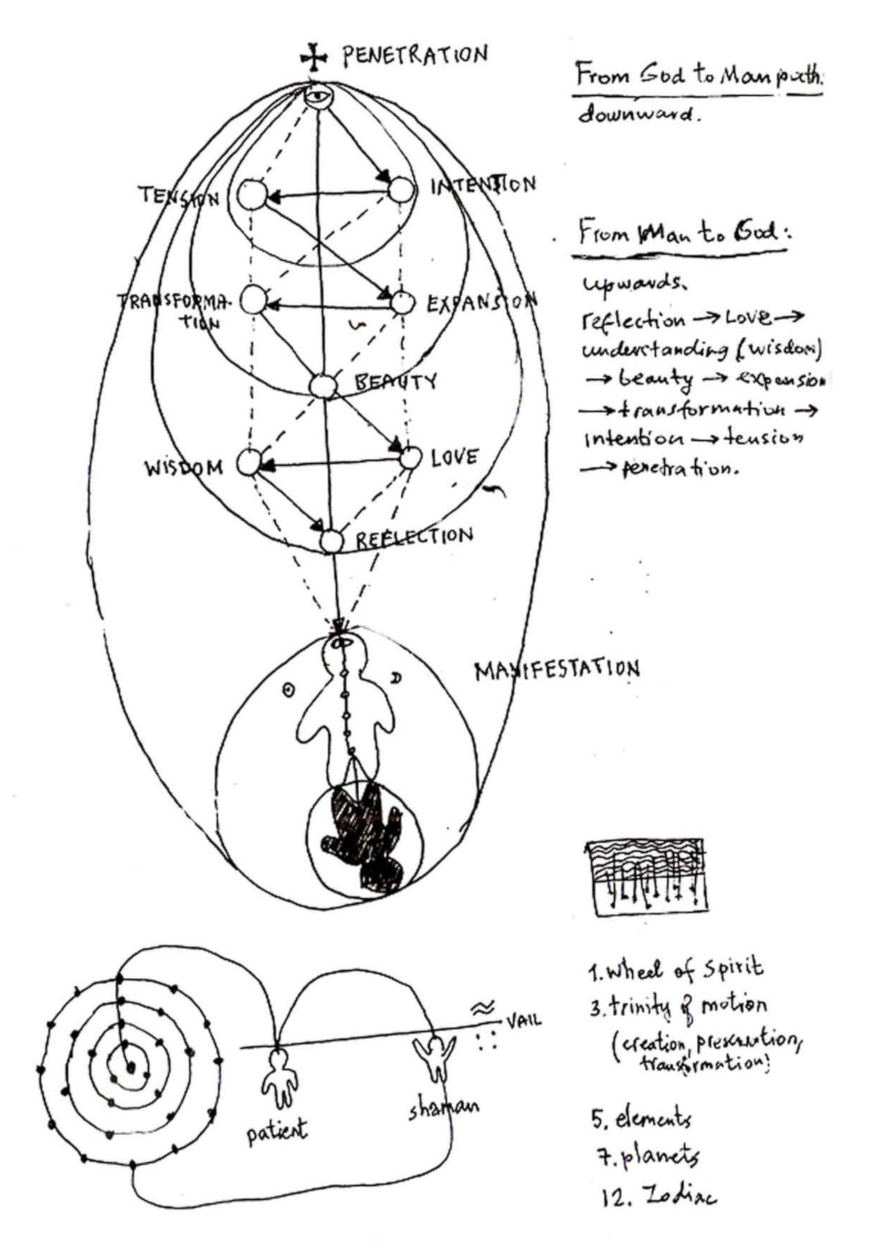 PENETRATION
TENSION
INTENTION
TRANSFORMA-
TION
EXPANSION
BEAUTY
WISDOM
LOVE
REFLECTION
MANIFESTATION
From God to Man path:
downward.
From Man to God:
upwards.
reflection → Love →
understanding (wisdom)
→ beauty → expension
→ transformation →
intention → tension
→ penetration.
VAIL
patient
shaman
1. wheel of Spirit
3. trinity of motion
(creation, preservation,
transformation)
5. elements
7. planets
12. Zodiac